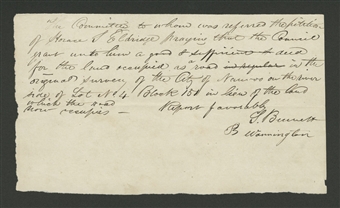 The Committee to whom was referred the petition
of Horace S Eldridge praying that the Council
grant unto him a good & sufficient deed
for the land occupied as road in the
original survey of the City of Nauvoo on the river
side of Lot No 4 Block 151 in lieu of the land
which the road
now occupies — Report favorably
B Warrington